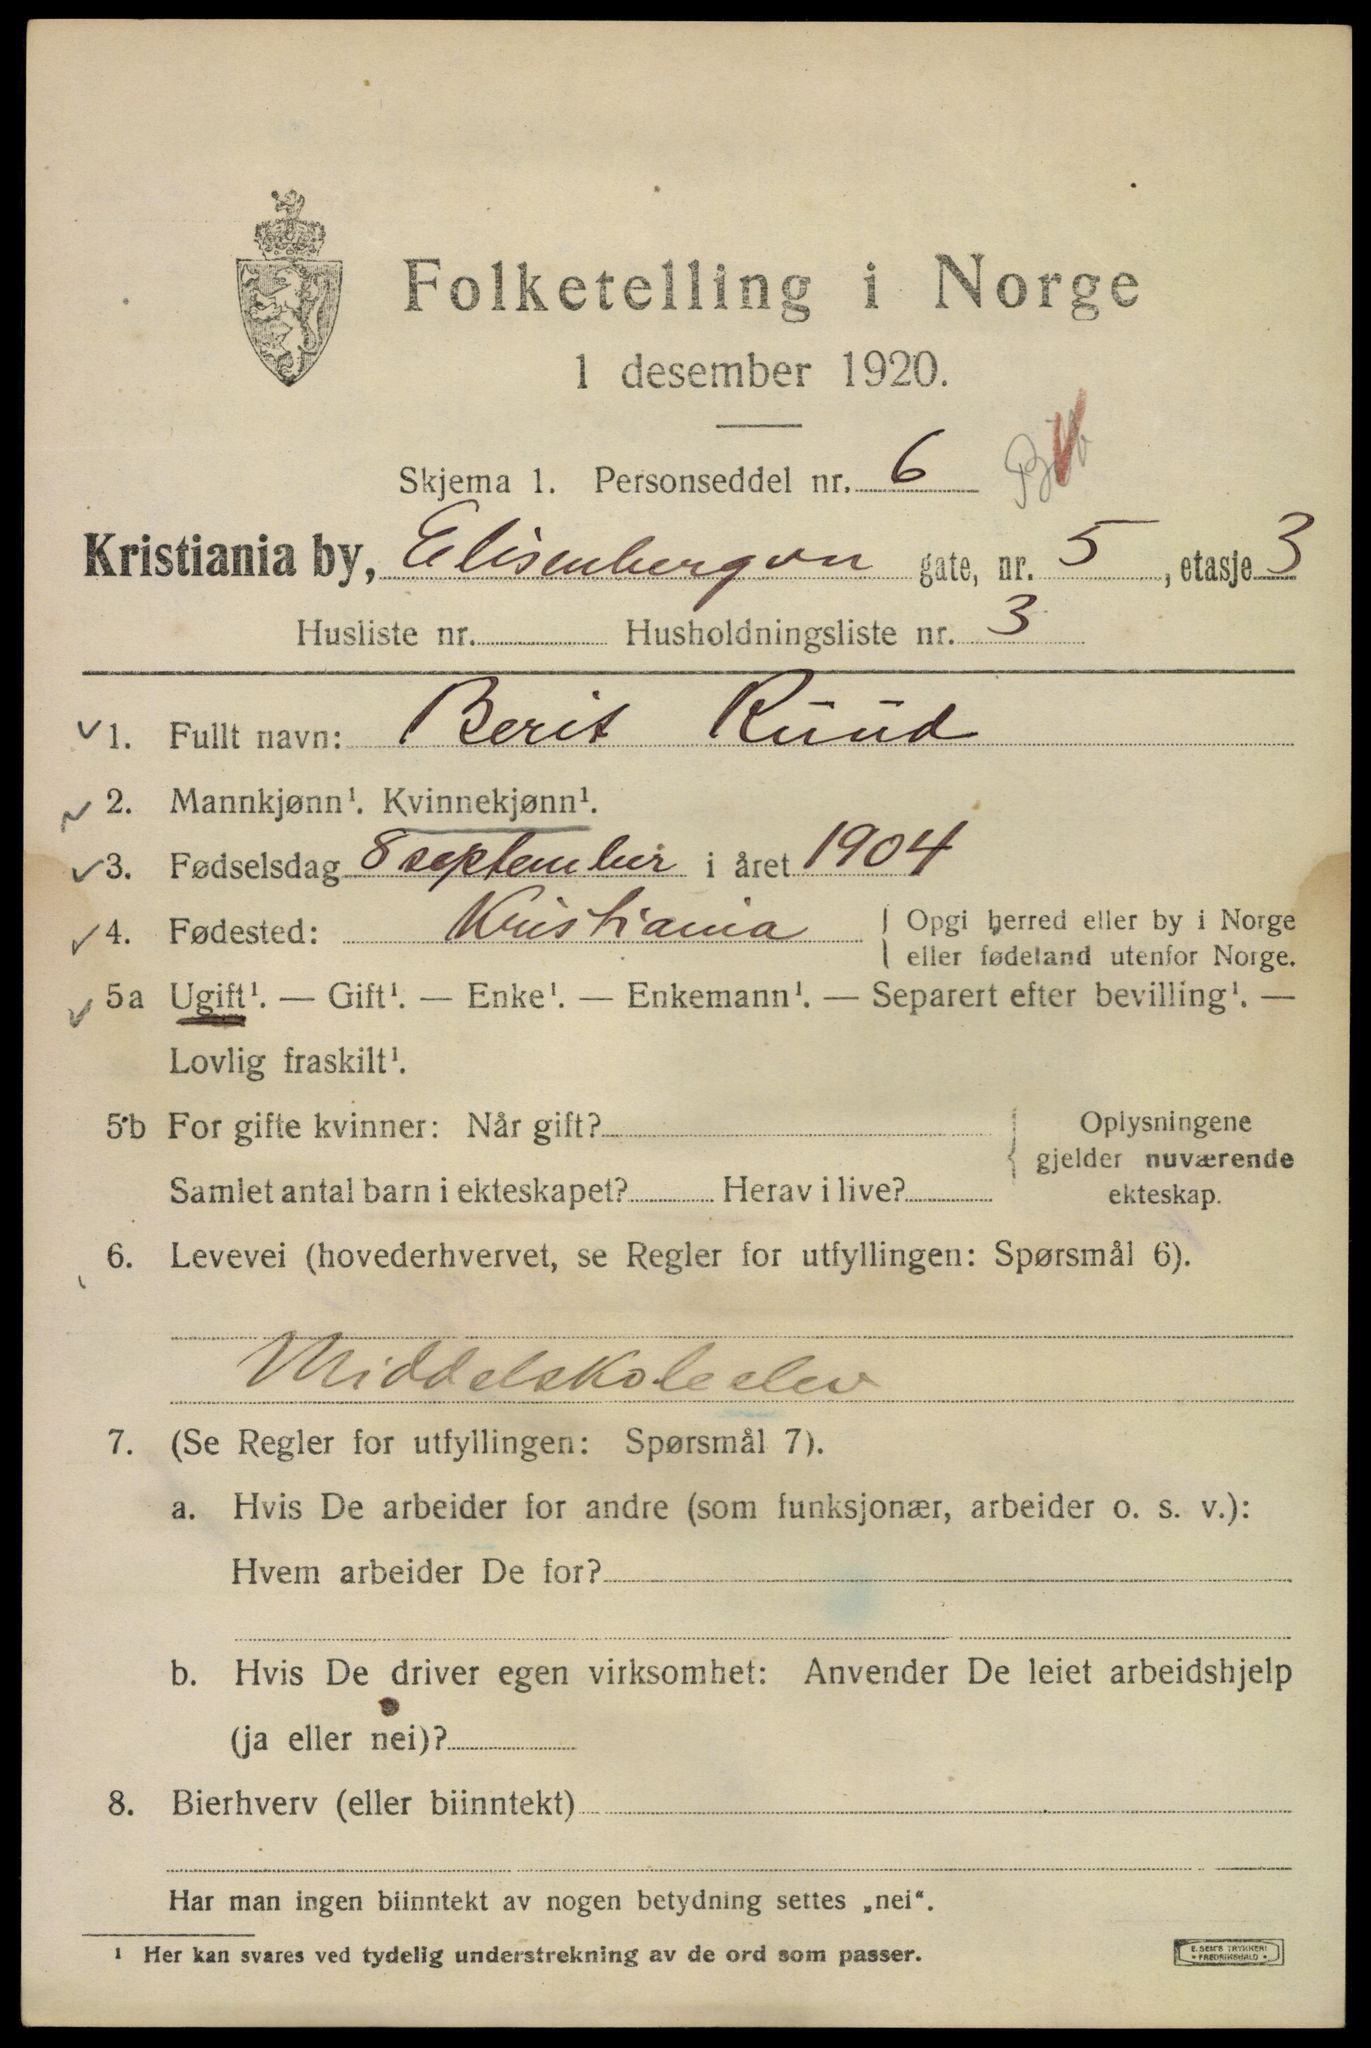 Folketelling i Norge
1 desember 1920.
Skjema 1. Personseddel nr. 6
Kristiania by, Elisenbergvn gate, nr. 5, etasje 3
Husliste nr. Husholdningsliste nr. 3
1. Fullt navn: Berit Ruud
2. Mannkjønn¹. Kvinnekjønn¹.
3. Fødselsdag 8 september i året 1904
4. Fødested: Kristiania { Opgi herred eller by i Norge
eller fødeland utenfor Norge.
5a Ugift¹. — Gift¹. — Enke¹. — Enkemann¹. — Separert efter bevilling¹. —
Lovlig fraskilt¹.
5b For gifte kvinner: Når gift?
Samlet antal barn i ekteskapet? Herav i live?
Oplysningene
gjelder nuværende
ekteskap.
6. Levevei (hovederhvervet, se Regler for utfyllingen: Spørsmål 6).
Middelskoleelev
7. (Se Regler for utfyllingen: Spørsmål 7).
a. Hvis De arbeider for andre (som funksjonær, arbeider o. s. v.):
Hvem arbeider De for?
b. Hvis De driver egen virksomhet: Anvender De leiet arbeidshjelp
(ja eller nei)?
8. Bierhverv (eller biinntekt)
Har man ingen biinntekt av nogen betydning settes „nei“.
¹ Her kan svares ved tydelig understrekning av de ord som passer.
E. SEM'S TRYKKERI
• FREDRIKSHALD •